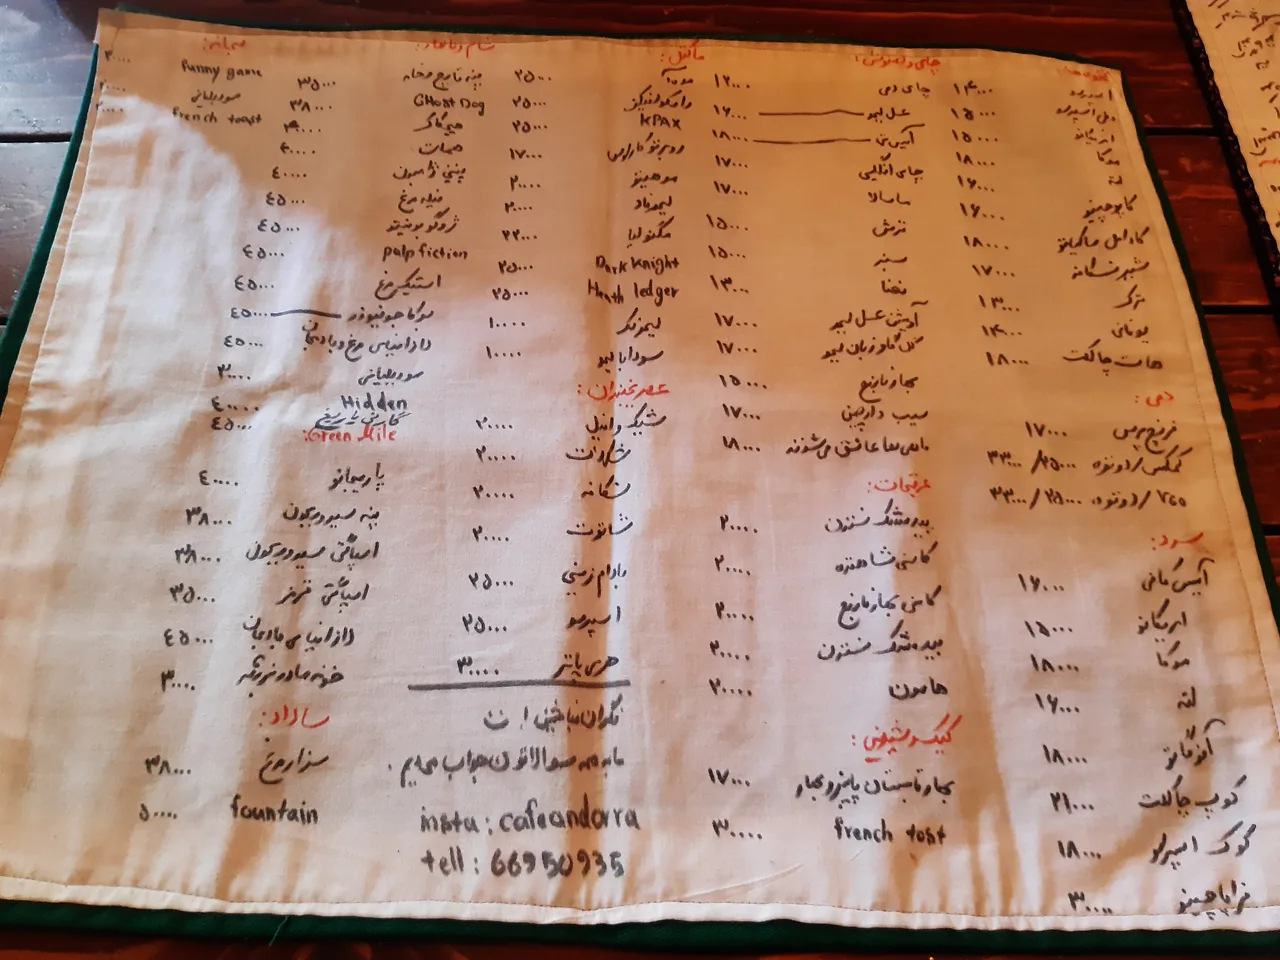 اسپرسو ۱۴۰۰۰
دبل اسپرسو ۱۵۰۰۰
۱۵۰۰۰
موکا ۱۸۰۰۰
لته ۱۶۰۰۰
کاپوچینو ۱۶۰۰۰
کارامل ماکیاتو ۱۸۰۰۰
شیر نسکافه ۱۷۰۰۰
ترک ۱۳۰۰۰
یونانی ۱۴۰۰۰
هات چاکلت ۱۸۰۰۰
دمی:
فرنچ پرس ۱۷۰۰۰
کمکس/ردونوه ۲۵۰۰۰/۳۳۰۰۰
V60/ردونوه ۲۵۰۰۰/۳۳۰۰۰
سرد:
آیس کافی ۱۶۰۰۰
امریکانو ۱۵۰۰۰
موکا ۱۸۰۰۰
لته ۱۶۰۰۰
آفوگاتو ۱۸۰۰۰
کوپ چاکلت ۲۱۰۰۰
کوک اسپرسو ۱۸۰۰۰
فراپاچینو ۳۰۰۰۰
چای و دمنوش:
چای دمی ۱۲۰۰۰
عسل لیمو ۱۶۰۰۰
آیس تی ۱۸۰۰۰
چای انگلیسی ۱۷۰۰۰
ماسالا ۱۷۰۰۰
ترش ۱۵۰۰۰
سبز ۱۵۰۰۰
نعنا ۱۳۰۰۰
آویشن عسل لیمو ۱۷۰۰۰
گل گاو زبان لیمو ۱۷۰۰۰
بهار نارنج ۱۵۰۰۰
سیب دارچین ۱۷۰۰۰
ماهی ها عاشق می شوند ۱۸۰۰۰
عرقیجات:
بیدمشک نسترن ۲۰۰۰۰
کاسنی شاهتره ۲۰۰۰۰
کاسنی بهار نارنج ۲۰۰۰۰
بیدمشک نسترن ۲۰۰۰۰
هامون ۲۰۰۰۰
کیک و شیرینی:
بهار تابستان پاییز و بهار ۱۷۰۰۰
french tost ۳۰۰۰۰
ماکتل:
مدآ ۲۵۰۰۰
دامکولندیگر ۲۵۰۰۰
KPAX ۲۵۰۰۰
روبرتو کارلوس ۱۷۰۰۰
موهیتو ۲۰۰۰۰
لیموناد ۲۰۰۰۰
مگنولیا ۲۲۰۰۰
Dark knight ۲۵۰۰۰
Heath ledger ۲۵۰۰۰
لیمونگر ۱۰۰۰۰
سودا با لیمو ۱۰۰۰۰
عصر یخبندان:
شیک وانیل ۲۰۰۰۰
شکلات ۲۰۰۰۰
نسکافه ۲۰۰۰۰
شاتوت ۲۰۰۰۰
بادام زمینی ۲۵۰۰۰
اسپرسو ۲۵۰۰۰
هری پاتر ۳۰۰۰۰
نگران نباشین! ت
ما به همه سوالاتون جواب میدیم.
insta: cafeandorra
tell: 66950935
شام و ناهار:
پنه قارچ و خامه ۳۵۰۰۰
GHost Dog ۳۸۰۰۰
هیچکاک
همات
پنینی ژامبون ۴۰۰۰۰
فیله مرغ ۴۵۰۰۰
ژوگو بونیتو ۴۵۰۰۰
Pulp fiction ۴۵۰۰۰
استیک مرغ ۴۵۰۰۰
بوکاجونیورز ۴۵۰۰۰
لازانیای مرغ و بادمجان ۴۵۰۰۰
سوربلیانی ۳۰۰۰۰
Hidden ۴۰۰۰۰
۴۵۰۰۰
Green Mile:
پارمیجانو ۴۰۰۰۰
پنه سبزیجون ۳۸۰۰۰
اسپاگتی سبزیجون ۳۸۰۰۰
اسپاگتی قرمز ۳۵۰۰۰
لازانیای بادمجان ۴۵۰۰۰
خونه مادربزرگه ۳۰۰۰۰
سالاد:
سزار مرغ ۳۸۰۰۰
fountain ۵۰۰۰۰
صبحانه:
Funny game
سوربلیانی
french toast